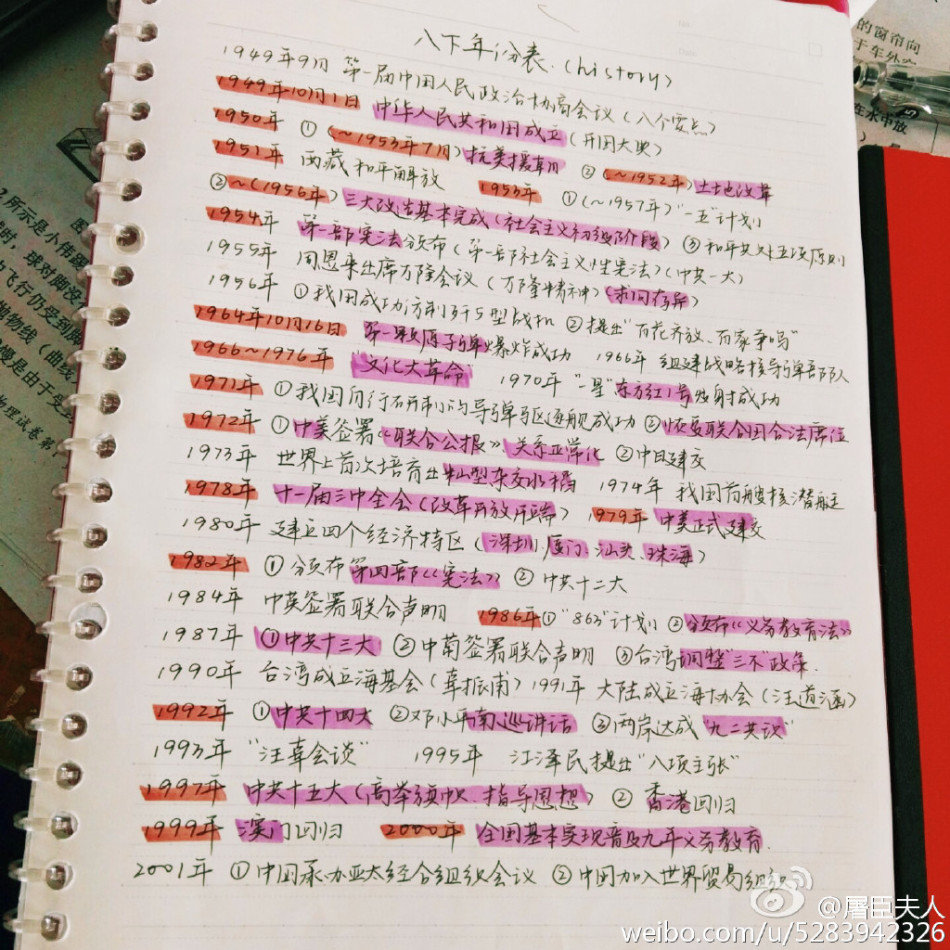 八下年份表.(history)
1949年9月 第一届中国人民政治协商会议(八个要点)
1949年10月1日 中华人民共和国成立(开国大典)
1950年 ①(~1953年7月)抗美援朝 ②(~1952年)土地改革
1951年 西藏和平解放 1953年 ①(~1957年)"一五"计划
②~(1956年)三大改造基本完成(社会主义初级阶段) ③和平共处五项原则
1954年 第一部宪法颁布(第一部社会主义性宪法)(中共一大)
1955年 周恩来出席万隆会议(万隆精神)(求同存异)
1956年 ①我国成功仿制歼5型战机 ②提出"百花齐放、百家争鸣"
1964年10月16日 第一颗原子弹爆炸成功 1966年 组建战略核导弹部队
1966~1976年 文化大革命 1970年 "一星"东方红1号发射成功
1971年 ①我国自行研制的导弹驱逐舰成功 ②恢复联合国合法席位
1972年 ①中美签署《联合公报》、关系正常化 ②中日建交
1973年 世界上首次培育出籼型杂交水稻 1974年 我国首艘核潜艇
1978年 十一届三中全会(改革开放开端) 1979年 中美正式建交
1980年 建立四个经济特区(深圳、厦门、汕头、珠海)
1982年 ①颁布第四部《宪法》 ②中共十二大
1984年 中英签署联合声明 1986年①"863"计划 ②颁布《义务教育法》
1987年 ①中共十三大 ②中葡签署联合声明 ③台湾调整"三不"政策.
1990年 台湾成立海基会(辜振甫) 1991年 大陆成立海协会(汪道涵)
1992年 ①中共十四大 ②邓小平南巡讲话 ③两岸达成"九二共识"
1993年 "汪辜会谈" 1995年 江泽民提出"八项主张"
1997年 中共十五大(高举旗帜、指导思想) ② 香港回归
1999年 澳门回归 2000年 全国基本实现普及九年义务教育.
2001年 ①中国承办亚太经合组织会议 ②中国加入世界贸易组织
的窗帘向
于车外
在水中放
所示是小伟踢
球对脚没
飞行仍受到脚
抛物线(曲线
慢是由于受
物理试卷第
@屠臣夫人
weibo.com/u/5283942326